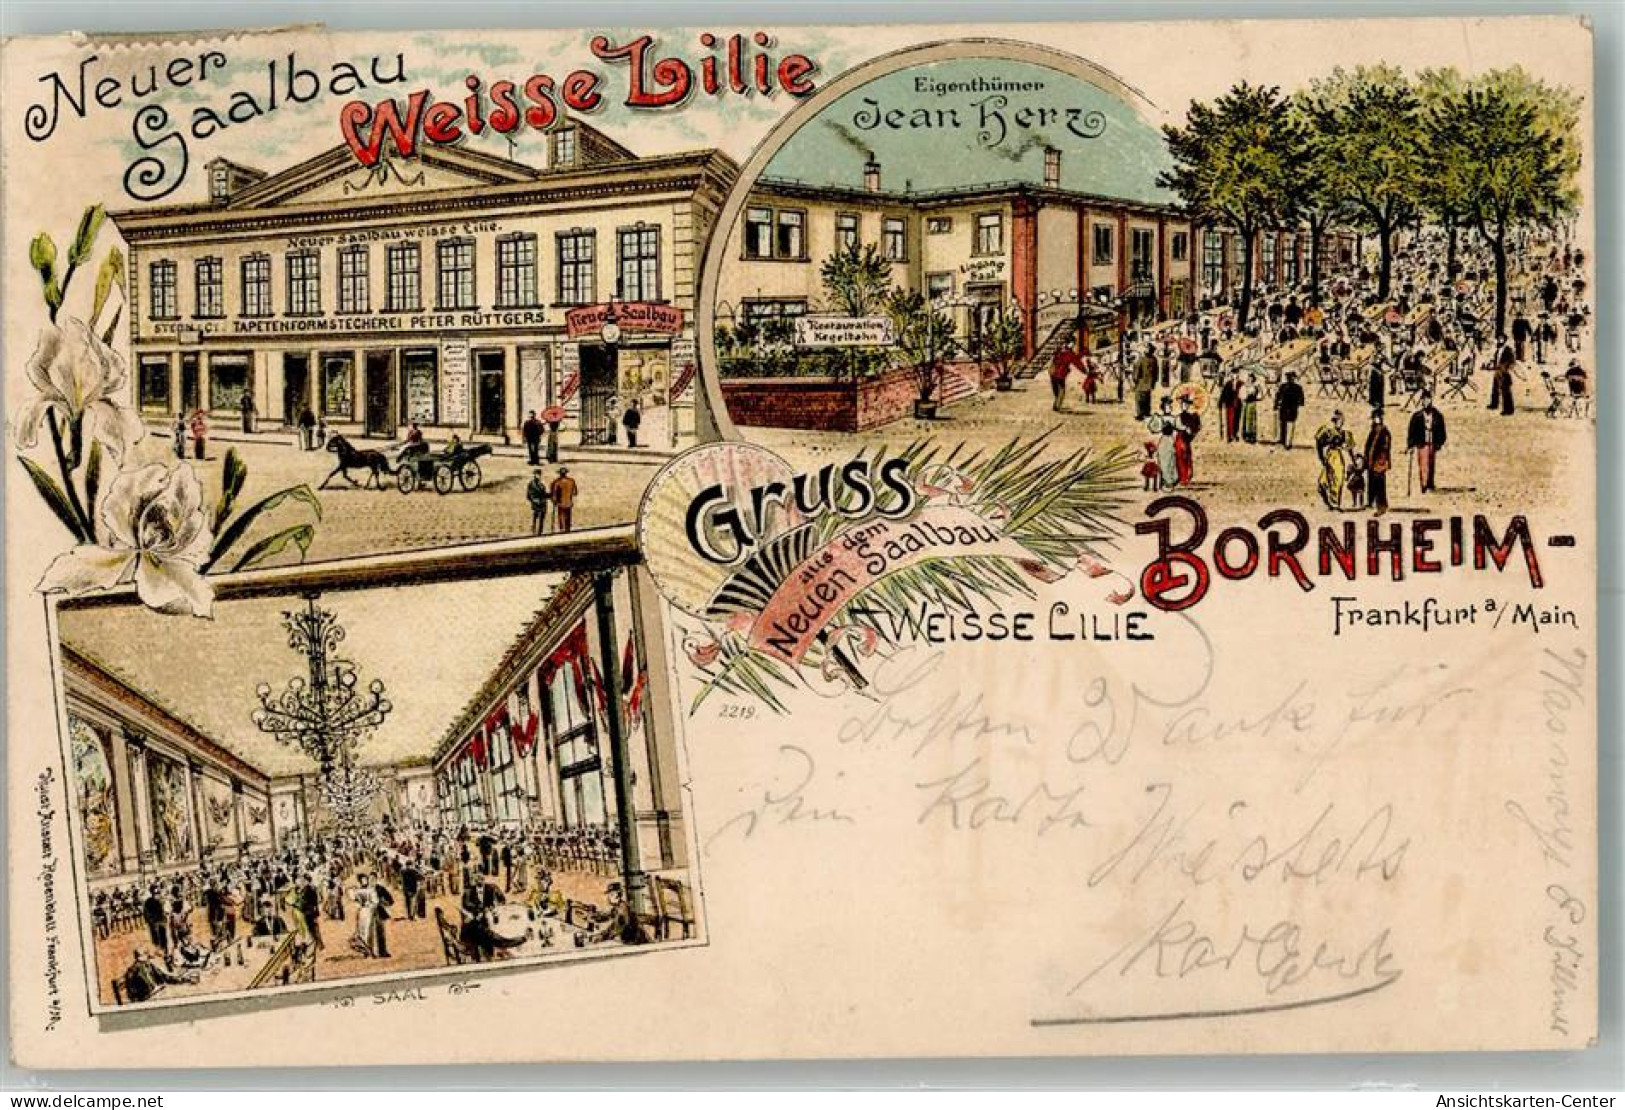 Neuer
Saalbau
Weisse Lilie
Eigenthümer
Jean Herz
Neuer Saalbau weisse Lilie.
TAPETENFORMSTECHEREI PETER RÜTTGERS.
Neuer Saalbau
Eingang
Saal
Restauration
Kegelbahn
Gruss
aus dem
Neuen Saalbau
WEISSE LILIE
BORNHEIM-
Frankfurt a/Main
2219.
SAAL
Rosenblatt Frankfurt a/M.
Besten Dank für
Dein Karte
Karl
Ansichtskarten-Center
www.delcampe.net